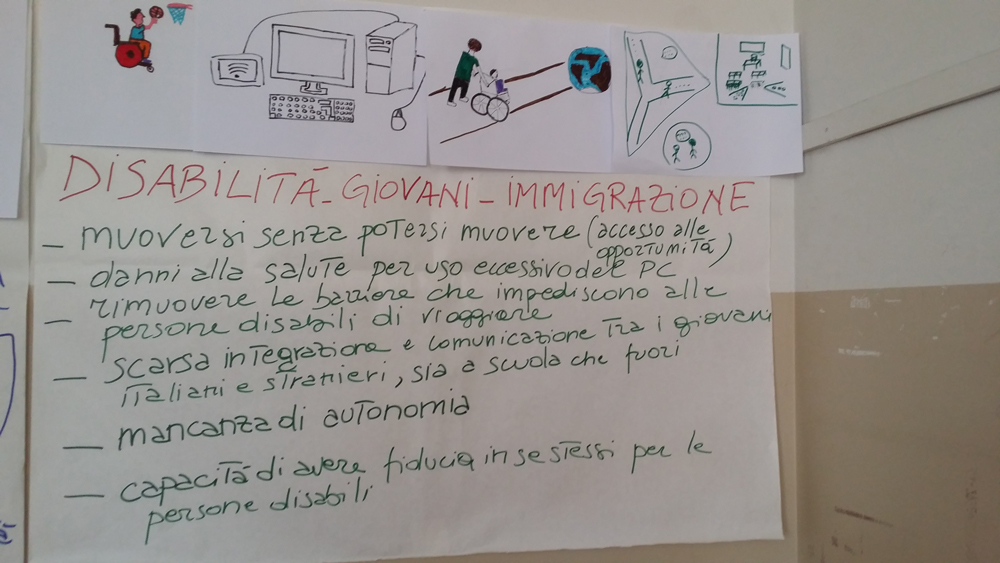 DISABILITÀ - GIOVANI - IMMIGRAZIONE
- muoversi senza potersi muovere (accesso alle
opportunità)
- danni alla salute per uso eccessivo del PC
- rimuovere le barriere che impediscono alle
persone disabili di viaggiare
- scarsa integrazione e comunicazione tra i giovani
italiani e stranieri, sia a scuola che fuori
- mancanza di autonomia
- capacità di avere fiducia in se stessi per le
persone disabili